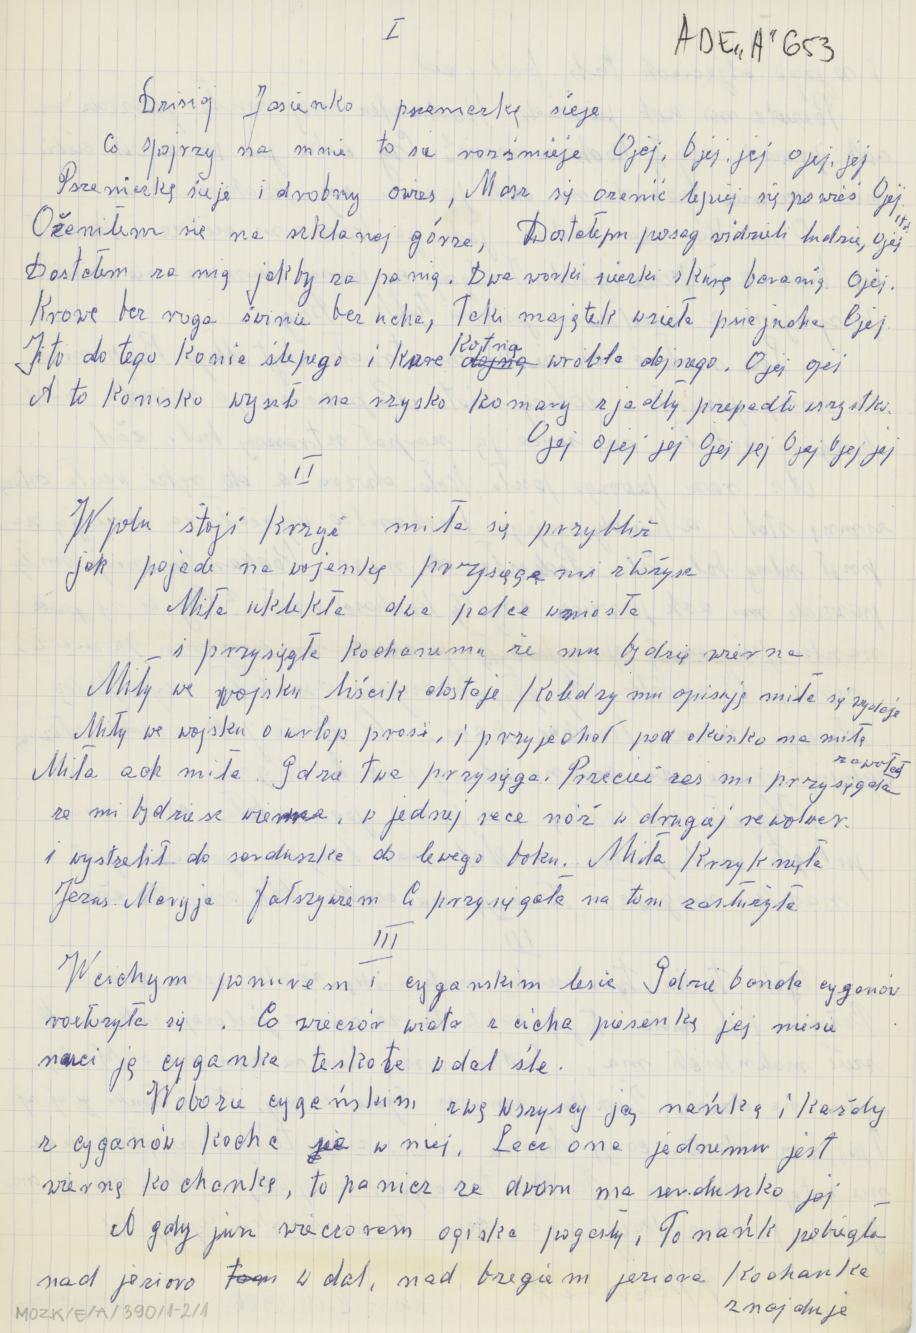 I
ADE„A" 653
Dzisioj Jasieńko pszeniczkę sieje
Co spojrzy na mnie to sie rozśmieje Ojej, Ojej, jej ojej, jej
Pszeniczkę sieje i drobny owies, Masz się ozenić lepiej się powieś Ojej.
Ożeniłem się na szklanej górze, Dostałem posag widzieli ludzie, ojej
Dostałem za nią jakby za panią. Dwa worki sieczki skurę baranią. Ojej.
Krowę bez roga świnie bez ucha, Taki majątek wzieła psiajucha Ojej
I to do tego konia ślepego i kure Kojtna dojną wróbla dojnego. Ojej ojej
A to konisko wyszło na rzysko komary zjadły przepadło wszystko.
Ojej ojej jej Ojej jej Ojej Ojej jej
II
W polu stoji krzyż miła się przybliż
jak pojade na wojenkę przysięgę mi złożysz
Miła uklękła dwa palce wzniosła
i przysięgła kochanemu że mu będzię wierna
Miły we wojsku liścik dostaje Koledzy mu opisują miła się wydaje
Miły we wojsku o urlop prosi, i przyjechał pod okienko na miłą
zawołał
Miła ach miła. Gdzie twa przysięga. Przecież zes mi przysięgała
ze mi będziesz wierna, w jednej rece nóż w drugiej rewolwer.
i wystrzelił do serduszka do lewego boku. Miła Krzyknęła
Jezus. Maryja. Fałszywiem Ci przysięgała na tom zasłużyła
III
W cichym ponurem i cyganskim lesie Gdzie banda cyganów
rozłozyła się. Co wieczór wiatr z cicha piesenkę jej niesie
nuci ją cyganka teskote w dal śle.
W obozie cygańskim zwą wszyscy ją nańką i każdy
z cyganów kocha sie w niej. Lecz ona jednemu jest
wierną kochanką, to panicz ze dworu ma serduszko jej
A gdy juz wieczorem ogiska pogasły, To nańk pobiegła
nad jezioro w dal, nad brzegiem jeziora kochanka
znajduje
MOZK/E/A/390/1-2/1